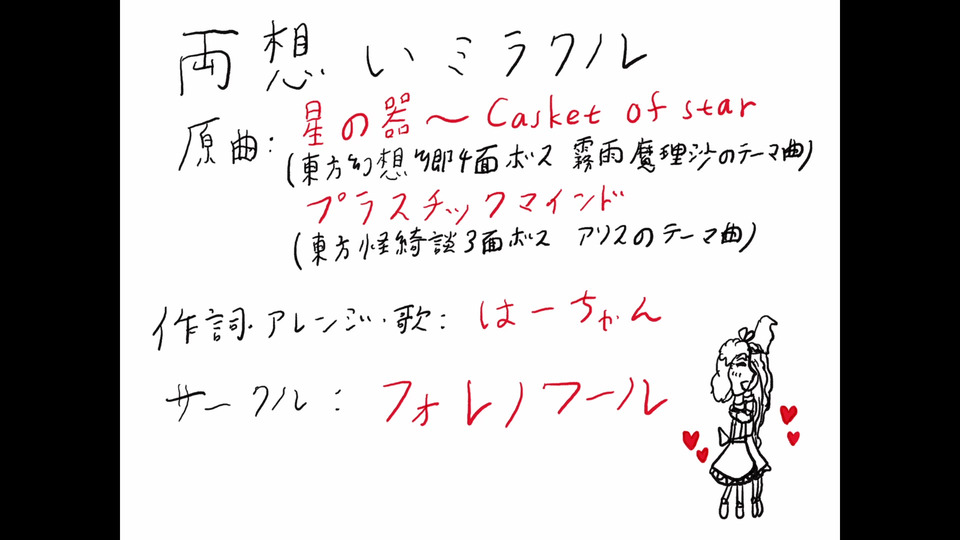 両想いミラクル
原曲:星の器〜Casket of star
(東方幻想郷4面ボス 霧雨魔理沙のテーマ曲)
プラスチックマインド
(東方怪綺談3面ボス アリスのテーマ曲)
作詞・アレンジ・歌:はーちゃん
サークル:フォレノワール